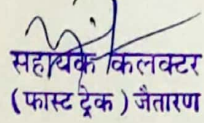 सहायक कलक्टर
(फास्ट ट्रेक) जैतारण